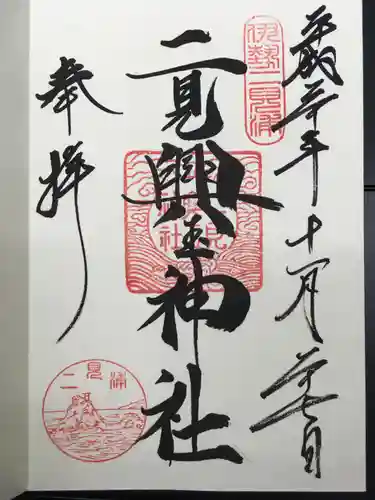 平成三十年十一月二十七日
伊勢二見浦
二見興玉神社
奉拝
二見浦